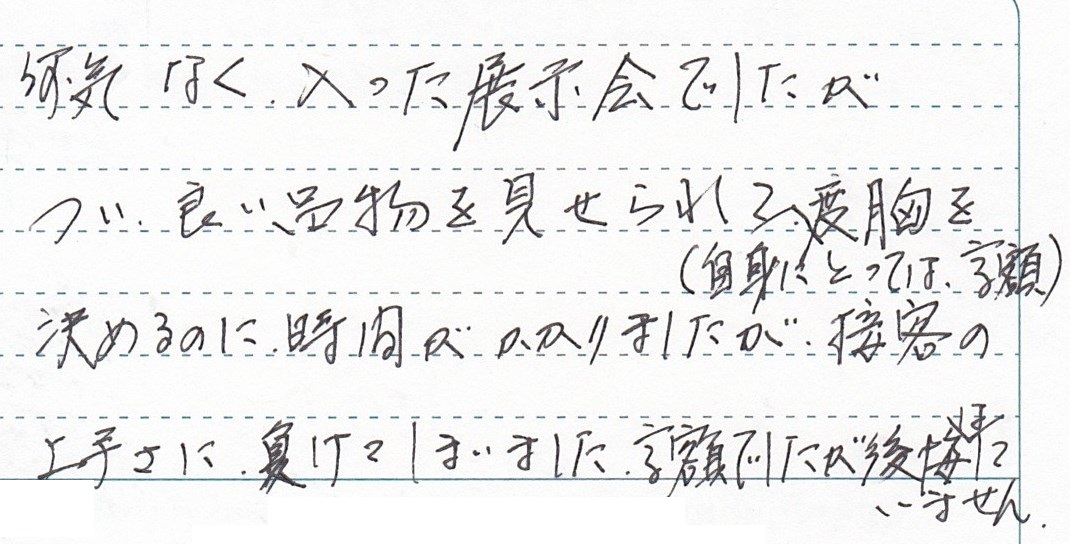 何気なく、入った展示会でしたが
つい、良い品物を見せられて、度胸を
(自身にとっては、高額)
決めるのに、時間がかかりましたが、接客の
上手さに、負けてしまいました、高額でしたが後悔はして
いません.